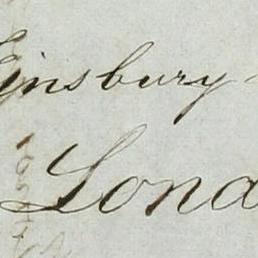 insbury
Lond